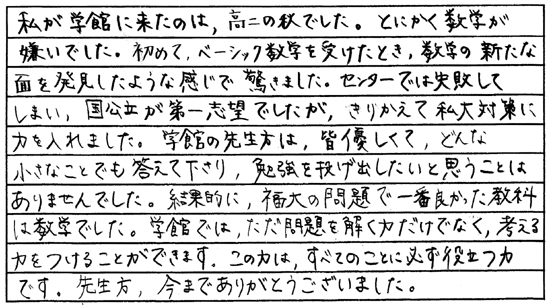 私が学館に来たのは，高二の秋でした。とにかく数学が
嫌いでした。初めて，ベーシック数学を受けたとき，数学の新たな
面を発見したような感じで驚きました。センターでは失敗して
しまい，国公立が第一志望でしたが，きりかえて私大対策に
力を入れました。学館の先生方は，皆優しくて，どんな
小さなことでも答えて下さり，勉強を投げ出したいと思うことは
ありませんでした。結果的に，福大の問題で一番良かった教科
は数学でした。学館では，ただ問題を解く力だけでなく，考える
力をつけることができます。この力は，すべてのことに必ず役立つ力
です。先生方，今までありがとうございました。